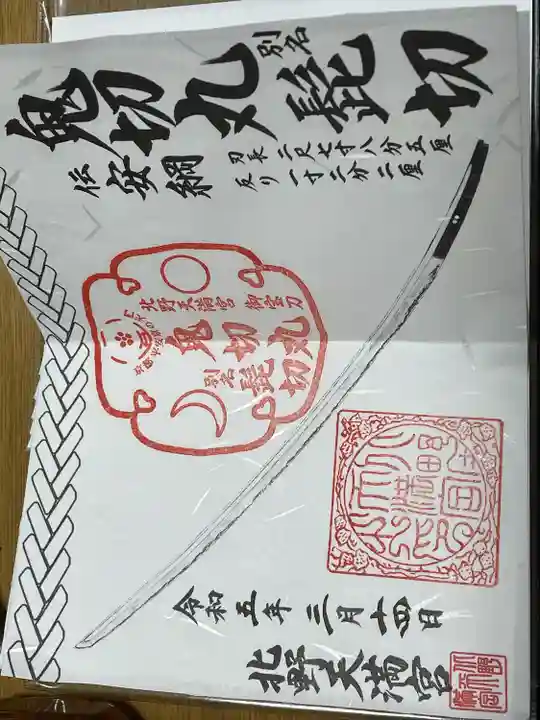 鬼切丸 別名 髭切
伝 安綱
刃長 二尺七寸八分五厘
反り 一寸二分二厘
北野天満宮 御宝刀
鬼切丸
別名 髭切
令和五年 三月十四日
北野天満宮